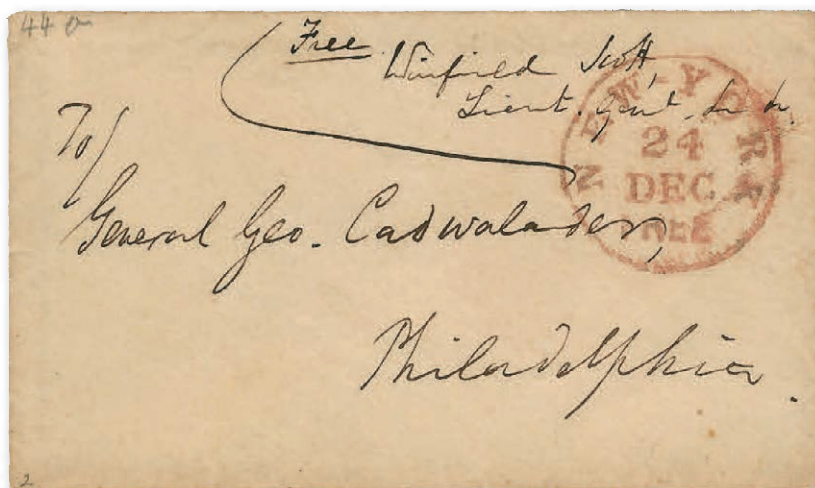 44
Free
Winfield Scott,
Lieut. Genl.
NEW-YORK
24
DEC
FREE
To/
General Geo. Cadwalader,
Philadelphia.
2